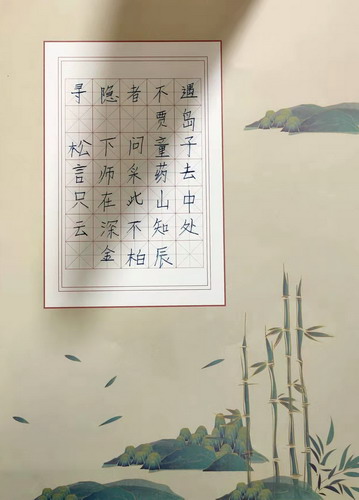 寻隐者不遇
贾岛
松下问童子
言师采药去
只在此山中
云深不知处
金柏辰